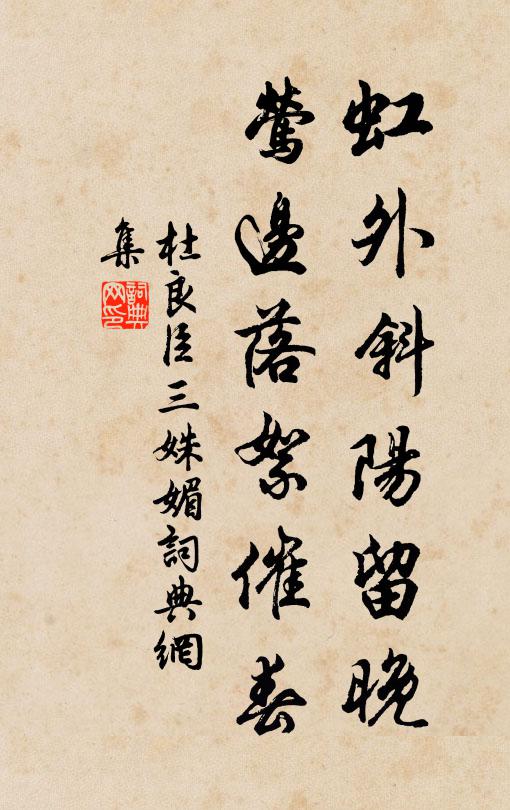 虹外斜陽留晚
鶯邊落絮催春
杜良臣三姝媚詞典網
集
詞典網印